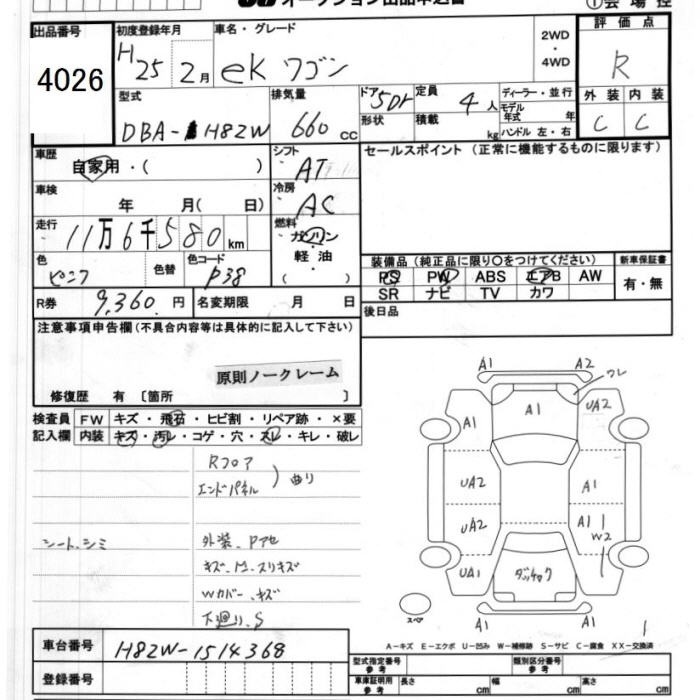 オークション出品申込書
出品番号
4026
初度登録年月
H25 2月
車名・グレード
ek ワゴン
2WD
・
4WD
評価点
R
外装 内装
C C
型式
DBA-H82W
排気量
660 cc
ドア 5Dr
形状
定員 4人
積載 kg
ディーラー・並行
モデル年式 年
ハンドル 左・右
車歴
自家用・( )
シフト
AT
セールスポイント (正常に機能するものに限ります)
車検
年 月( 日)
冷房
AC
走行
11万6千580km
燃料
ガソリン
・
軽油
( )
色 ピンク
色替
色コード P38
装備品 (純正品に限り○をつけてください)
PS PW ABS エアB AW
SR ナビ TV カワ
新車保証書
有・無
R券 9,360円
名変期限 月 日
後日品
注意事項申告欄 (不具合内容等は具体的に記入して下さい)
原則ノークレーム
修復歴 有 〔箇所 〕
検査員記入欄
FW キズ・飛石・ヒビ割・リペア跡・×要
内装 キズ・汚レ・コゲ・穴・スレ・キレ・破レ
Rフロア
エンドパネル ) 曲り
シート、シミ
外装、Pアセ
キズ・凹・スリキズ
Wカバー、キズ
下廻り、S
A1 A2
ワレ
A1 A1 UA2
UA2 A1
UA2 A1 W2
UA1 ダッチャク
A1 A1
スペア
1
A-キズ E-エクボ U-凹み W-補修跡 S-サビ C-腐食 XX-交換済
車台番号 H82W-1514368
登録番号
型式指定番号 参考
類別区分番号 参考
車庫証明用 参考
長さ cm 幅 cm 高さ cm